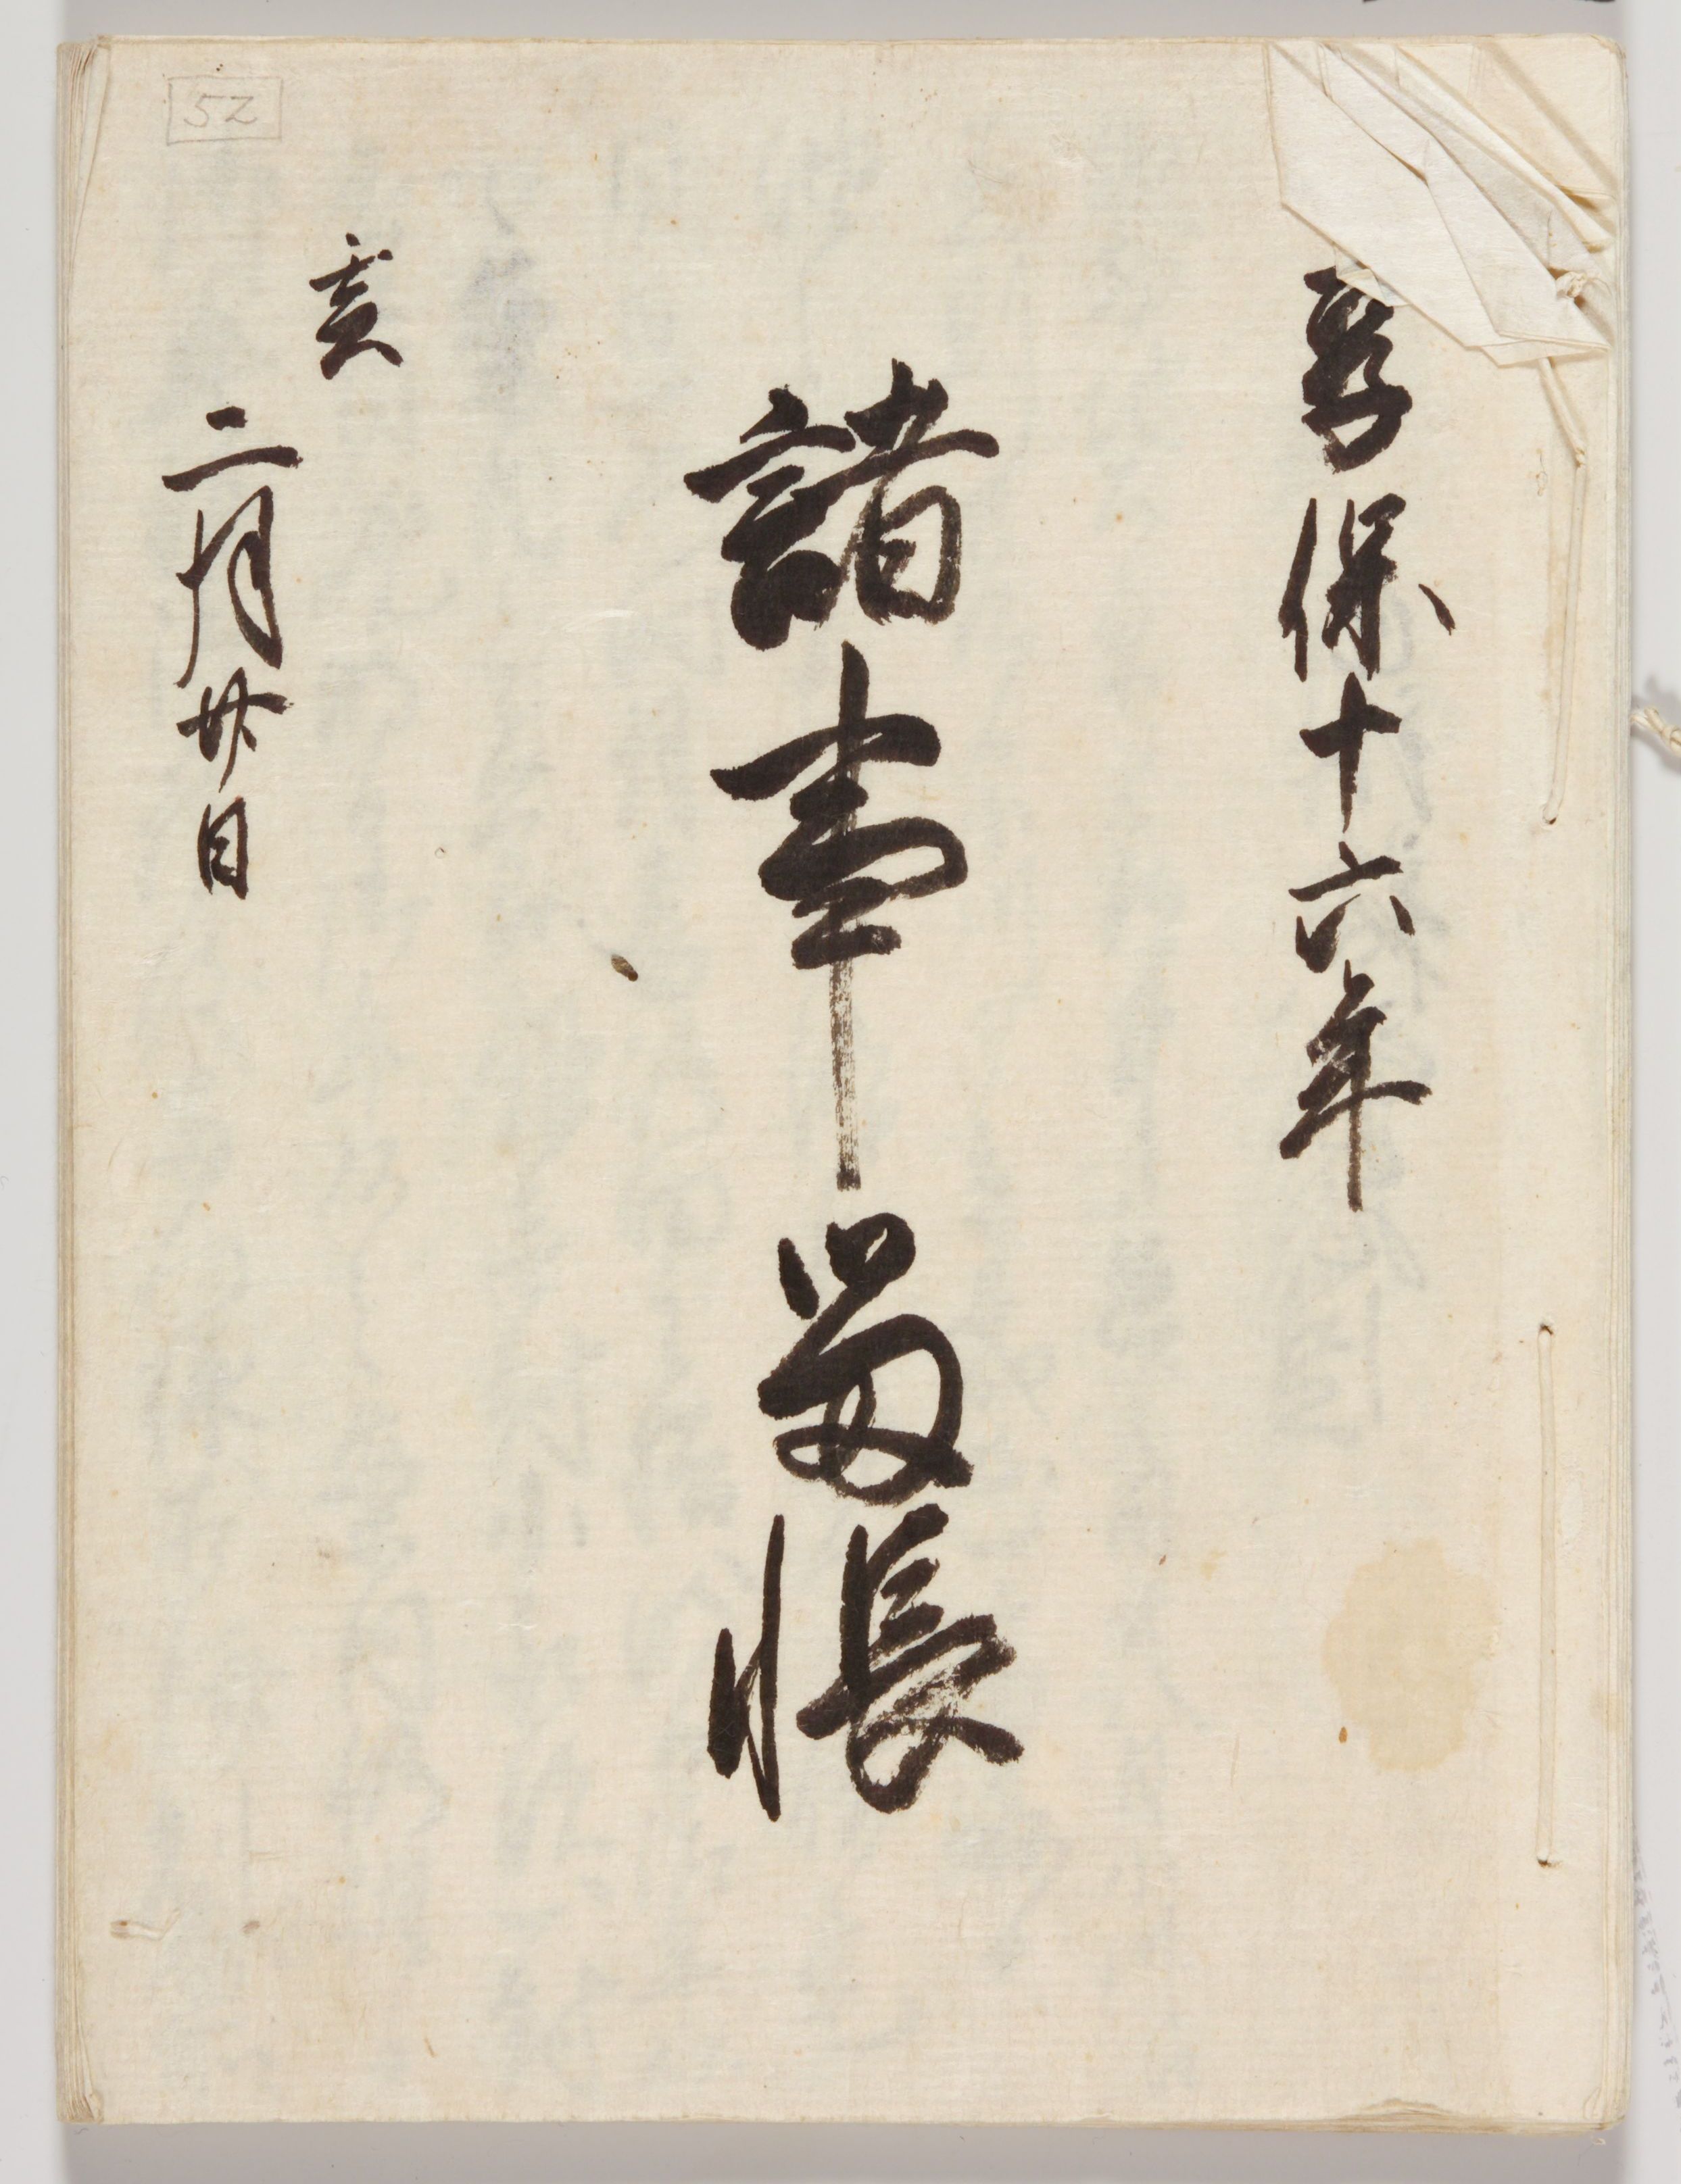 享保十六年
諸事留帳
亥
二月廿日
52